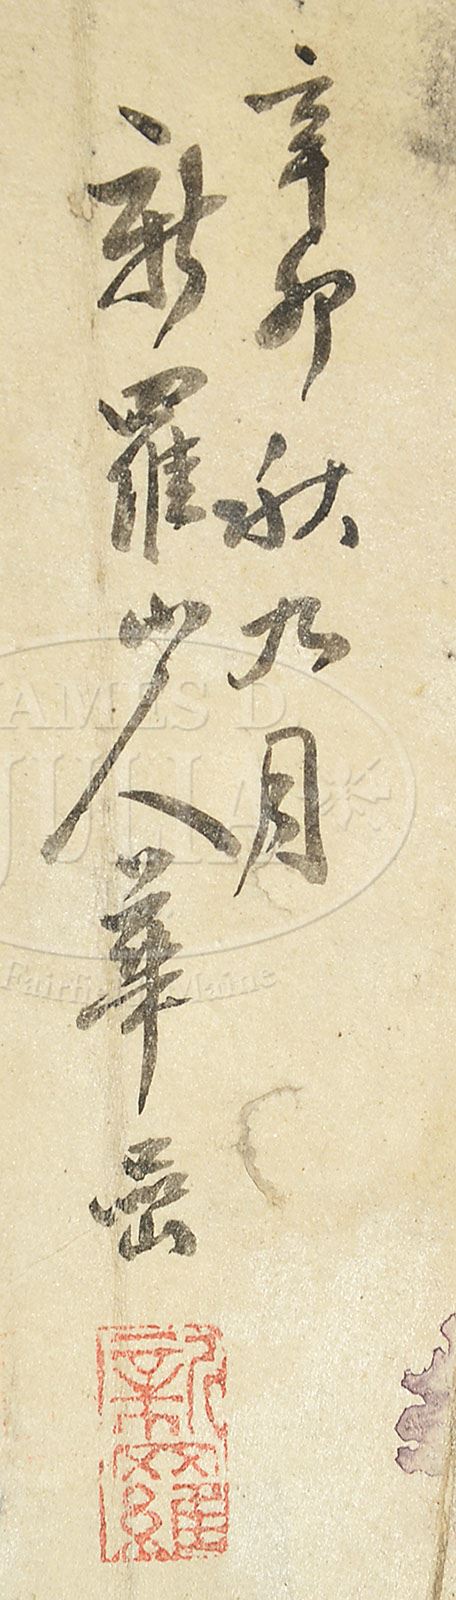 辛卯秋九月
新羅山人華嵒
新羅
JAMES D.
JULIA
Fairfield, Maine